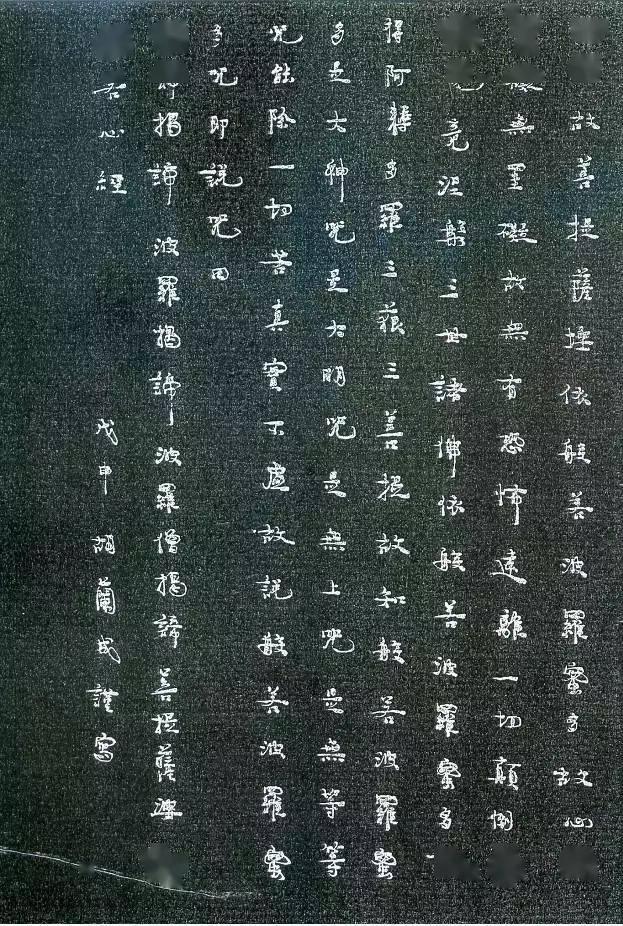 故菩提薩埵依般若波羅蜜多故心
無罣礙故無有恐怖遠離一切顛倒
竟涅槃三世諸佛依般若波羅蜜多
得阿耨多羅三藐三菩提故知般若波羅蜜
多是大神咒是大明咒是無上咒是無等等
咒能除一切苦真實不虛故說般若波羅蜜
多咒即說咒曰
諦揭諦 波羅揭諦 波羅僧揭諦 菩提薩婆
若心經
戊申 胡蘭成謹寫